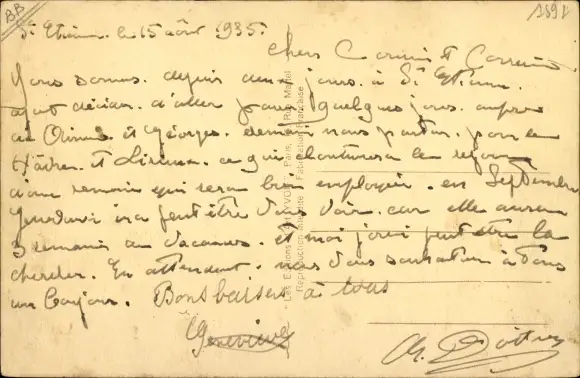 B.B
1891
St Etienne. le 15 août 1935.
Chers Cousin et Cousine
Nous sommes depuis deux jours. à St Etienne.
ayant décidé. d'aller passer quelques jours. auprès
de et Georges. demain nous partons. pour le
Hâvre. et Lisieux. ce qui cloturera le séjour
d'une semaine qui sera bien employée. en Septembre
ira peut être vous voir. car elle aura
3 semaines de vacances. et moi j'irai peut être la
chercher. En attendant. nous vous souhaitons à tous
un bonjour. Bons baisers à tous
Geneviève
Ch.
Les Editions d'Art YVON, Paris, Rue
Fabrication Française